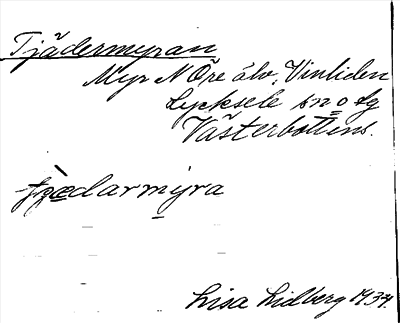 Tjädermyran
Myr N Öre älv, Vinliden
Lycksele sn o lg
Västerbottens.
tjædarmyra
Lisa Lidberg 1934.